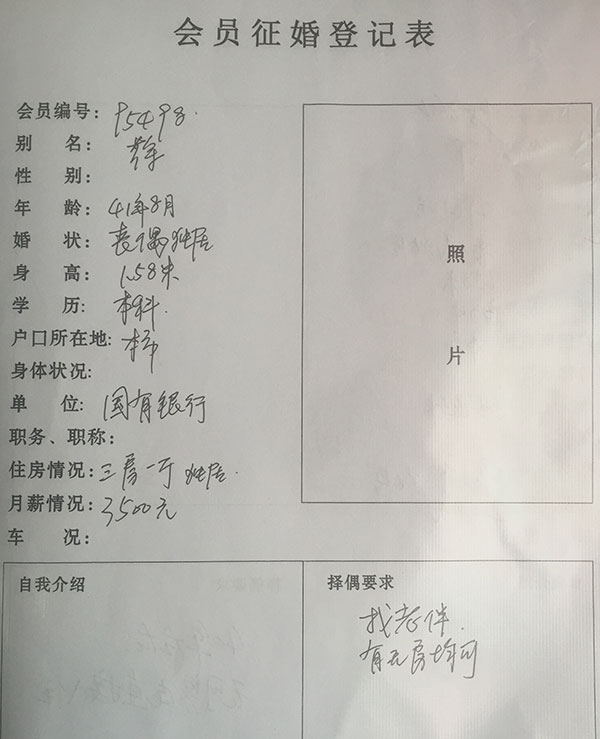 会员征婚登记表
会员编号: 95498
别 名:
性 别:
年 龄: 41年8月
婚 状: 丧偶独居
身 高: 1.58米
学 历: 本科
户口所在地: 本市
身体状况:
单 位: 国有银行
职务、职称:
住房情况: 三房一厅 独居
月薪情况: 3500元
车 况:
照
片
自我介绍
择偶要求
找老伴
有无房均可